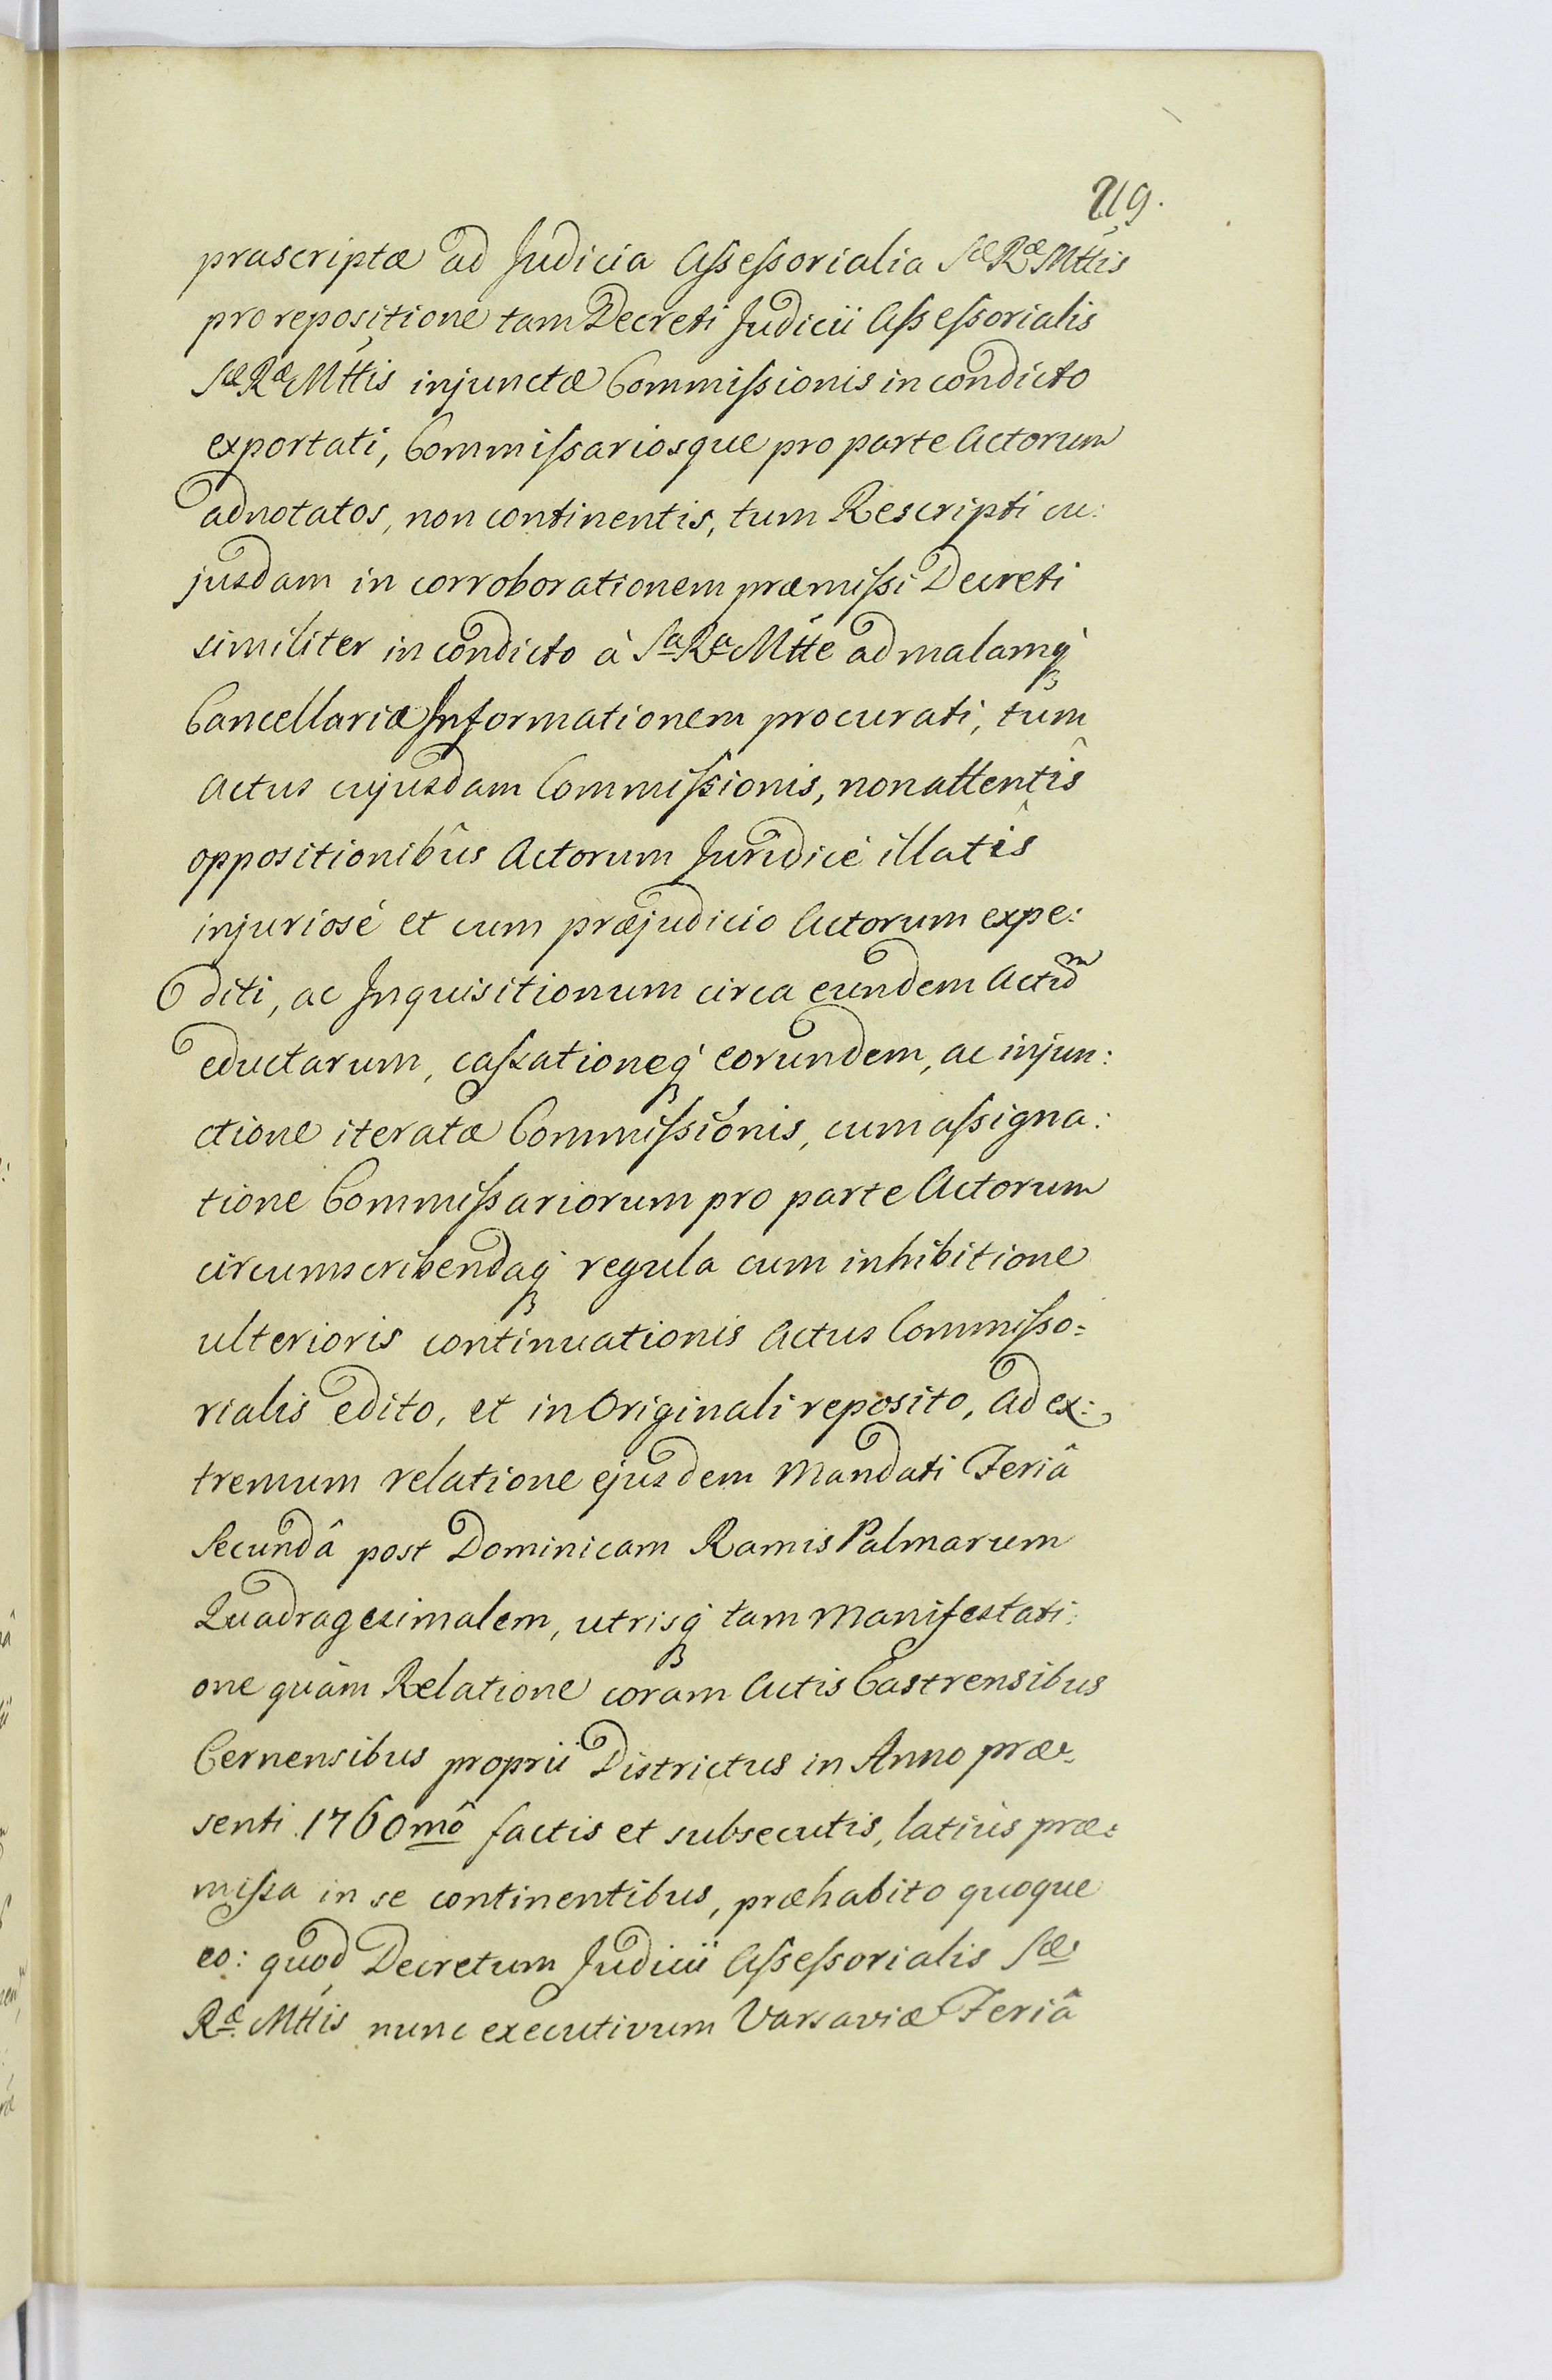 219.
præscriptæ ad Judicia Aſseſsorialia Sæ Ræ Mttis
pro repositione tam Decreti Judicii Aſseſsorialis
Sæ Ræ Mttis injunctæ Commiſsionis in condicto
exportati, Commiſsariosque pro parte Actorum
adnotatos, non continentis, tum Rescripti cu:
jusdam in corroborationem præmiſsi Decreti
similiter in condicto à Sa Ra Mtte ad malamq́
Cancellariæ Informationem procurati, tum
Actus cujusdam Commiſsionis, non attentîs
oppositionibûs Actorum Juridicé illatîs
injuriosé et cum præjudicio Actorum expe:
diti, ac Inquisitionum circa eundem Actum
eductarum, caſsationeq́ eorundem, ac injun:
ctione iteratæ Commiſsionis, cum aſsigna:
tione Commiſsariorum pro parte Actorum
circumscribendaq́ regula cum inhibitione
ulterioris continuationis Actus Commiſso:
rialis edito, et in Originali reposito, ad ex:
tremum relatione ejusdem Mandati Feriâ
Secundâ post Dominicam Ramis Palmarum
Quadragesimalem, utrisq́ tam Manifestati:
one quàm Relatione coram Actis Castrensibus
Cernensibus proprii Districtus in Anno præ:
senti 1760mô factis et subsecutis, latiùs præ:
miſsa in se continentibus, præhabito quoque
eo: quod Decretum Judicii Aſseſsorialis Sæ
Ræ Mttis nunc executivum Varsaviæ Feriâ